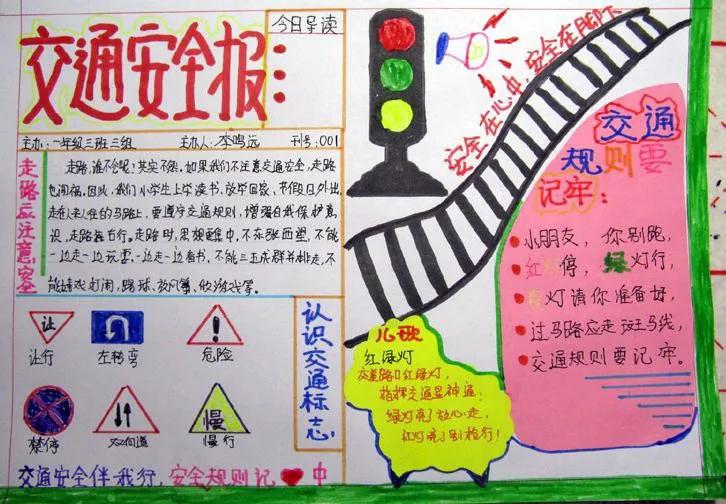 交通安全报:
今日导读
主办:一年级三班三组 主办人:李鸣远 刊号:001
走路应注意安全
走路,谁不会呢?其实不然。如果我们不注意交通安全,走路
也闯祸。因此,我们小学生上学读书、放学回家、节假日外出,
走在人来人往的马路上,要遵守交通规则,增强自我保护意
识,走路靠右行。走路时,思想要集中,不东张西望,不能
一边走一边玩耍,一边走一边看书,不能三五成群并排走,不
能嬉戏打闹,踢球、放风筝、做游戏等。
让
让行
左转弯
危险
禁停
双向道
慢
慢行
认识交通标志
交通安全伴我行,安全规则记❤中
安全在心中,安全在脚下
儿歌
红绿灯
交差路口红绿灯,
指挥交通显神通;
绿灯亮了放心走,
红灯亮了别抢行!
交通
规则要
记牢:
小朋友,你别跑,
红灯停,绿灯行,
黄灯请你准备好,
过马路应走斑马线,
交通规则要记牢。